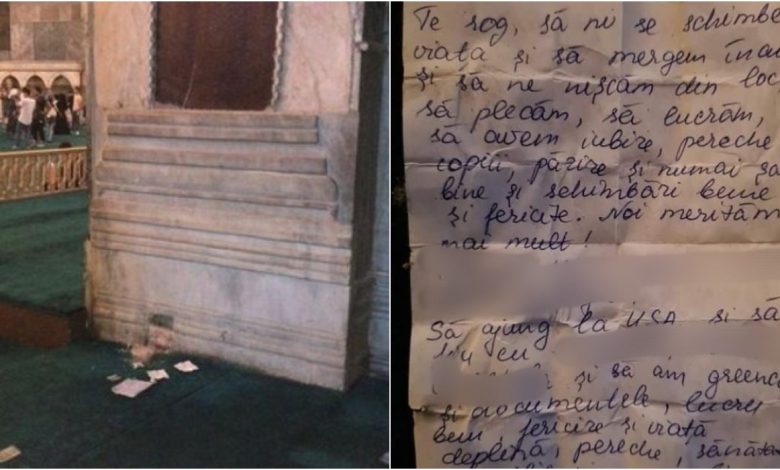 Te sog, să ni se schimbe
viața și să mergem îna
și să ne nișcăm din loc
să plecăm, să lucrăm,
să avem iubire, pereche
copiii, păzire și numai sa
bine și schimbări bene
și fericite. Noi merităm
mai mult!
Să ajung la USA si să
cu
și să am greenca
și documentele, lucru
bem, fericire și viață
deplină, pereche, sănăta